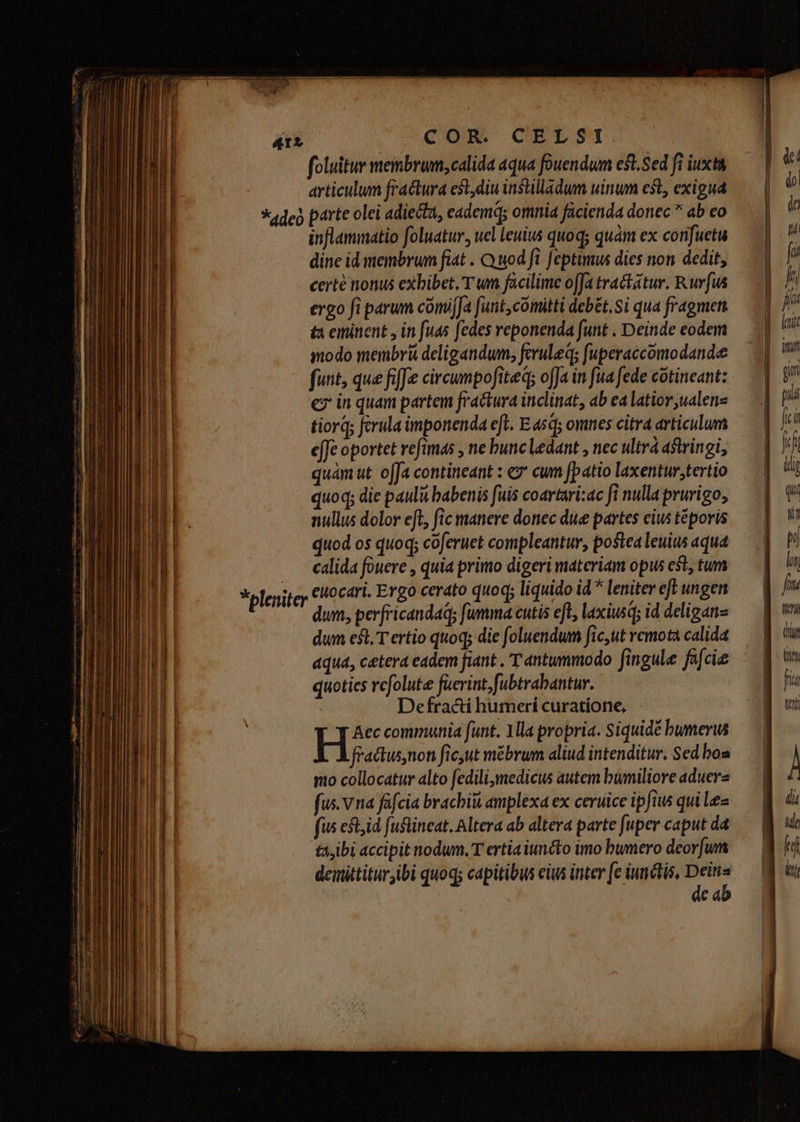 412 COR. CELSI
ſoluitur membrum, calida aqua fouendum est. Sed ſi iuxta
articulum fractura est, diu instillādum uinum est, exigua
*adeò parte olei adiecta, eademq́; omnia facienda donec * ab eo
inflammatio ſoluatur, uel leuius quoq; quàm ex conſuetu
dine id membrum fiat. Quod ſi ſeptimus dies non dedit,
certè nonus exhibet. Tum facilime oſſa tractātur. Rurſus
ergo ſi parum cōmiſſa ſunt, cōmitti debēt. Si qua fragmen
ta eminent, in ſuas ſedes reponenda ſunt. Deinde eodem
modo membrū deligandum, ferulæq́; ſuperaccōmodandæ
ſunt, quæ fiſſæ circumpoſitæq́; oſſa in ſua ſede cōtineant:
& in quam partem fractura inclinat, ab ea latior, ualen=
tiorq́; ferula imponenda eſt. Easq́; omnes citra articulum
eſſe oportet reſimas, ne hunc lædant, nec ultrà astringi,
quàm ut oſſa contineant: & cum ſpatio laxentur, tertio
quoq; die paulū habenis ſuis coartari: ac ſi nulla prurigo,
nullus dolor eſt, ſic manere donec duæ partes eius tēporis
quod os quoq; cōferuet compleantur, postea leuius aqua
calida fouere, quia primo digeri materiam opus est, tum
*pleniter euocari. Ergo cerato quoq; liquido id * leniter eſt ungen
dum, perfricandaq́; ſumma cutis eſt, laxiusq́; id deligan=
dum est. Tertio quoq; die ſoluendum ſic, ut remota calida
aqua, cætera eadem fiant. Tantummodo ſingulæ faſciæ
quoties reſolutæ fuerint, ſubtrahantur.
De fracti humeri curatione.
HAec communia ſunt. Illa propria. Siquidē humerus
fractus, non ſic, ut mēbrum aliud intenditur. Sed ho=
mo collocatur alto ſedili, medicus autem humiliore aduer=
ſus. Vna faſcia brachiū amplexa ex ceruice ipſius qui læ=
ſus est, id ſustineat. Altera ab altera parte ſuper caput da
ta, ibi accipit nodum. Tertia iuncto imo humero deorſum
demittitur, ibi quoq; capitibus eius inter ſe iunctis. Dein=
de ab